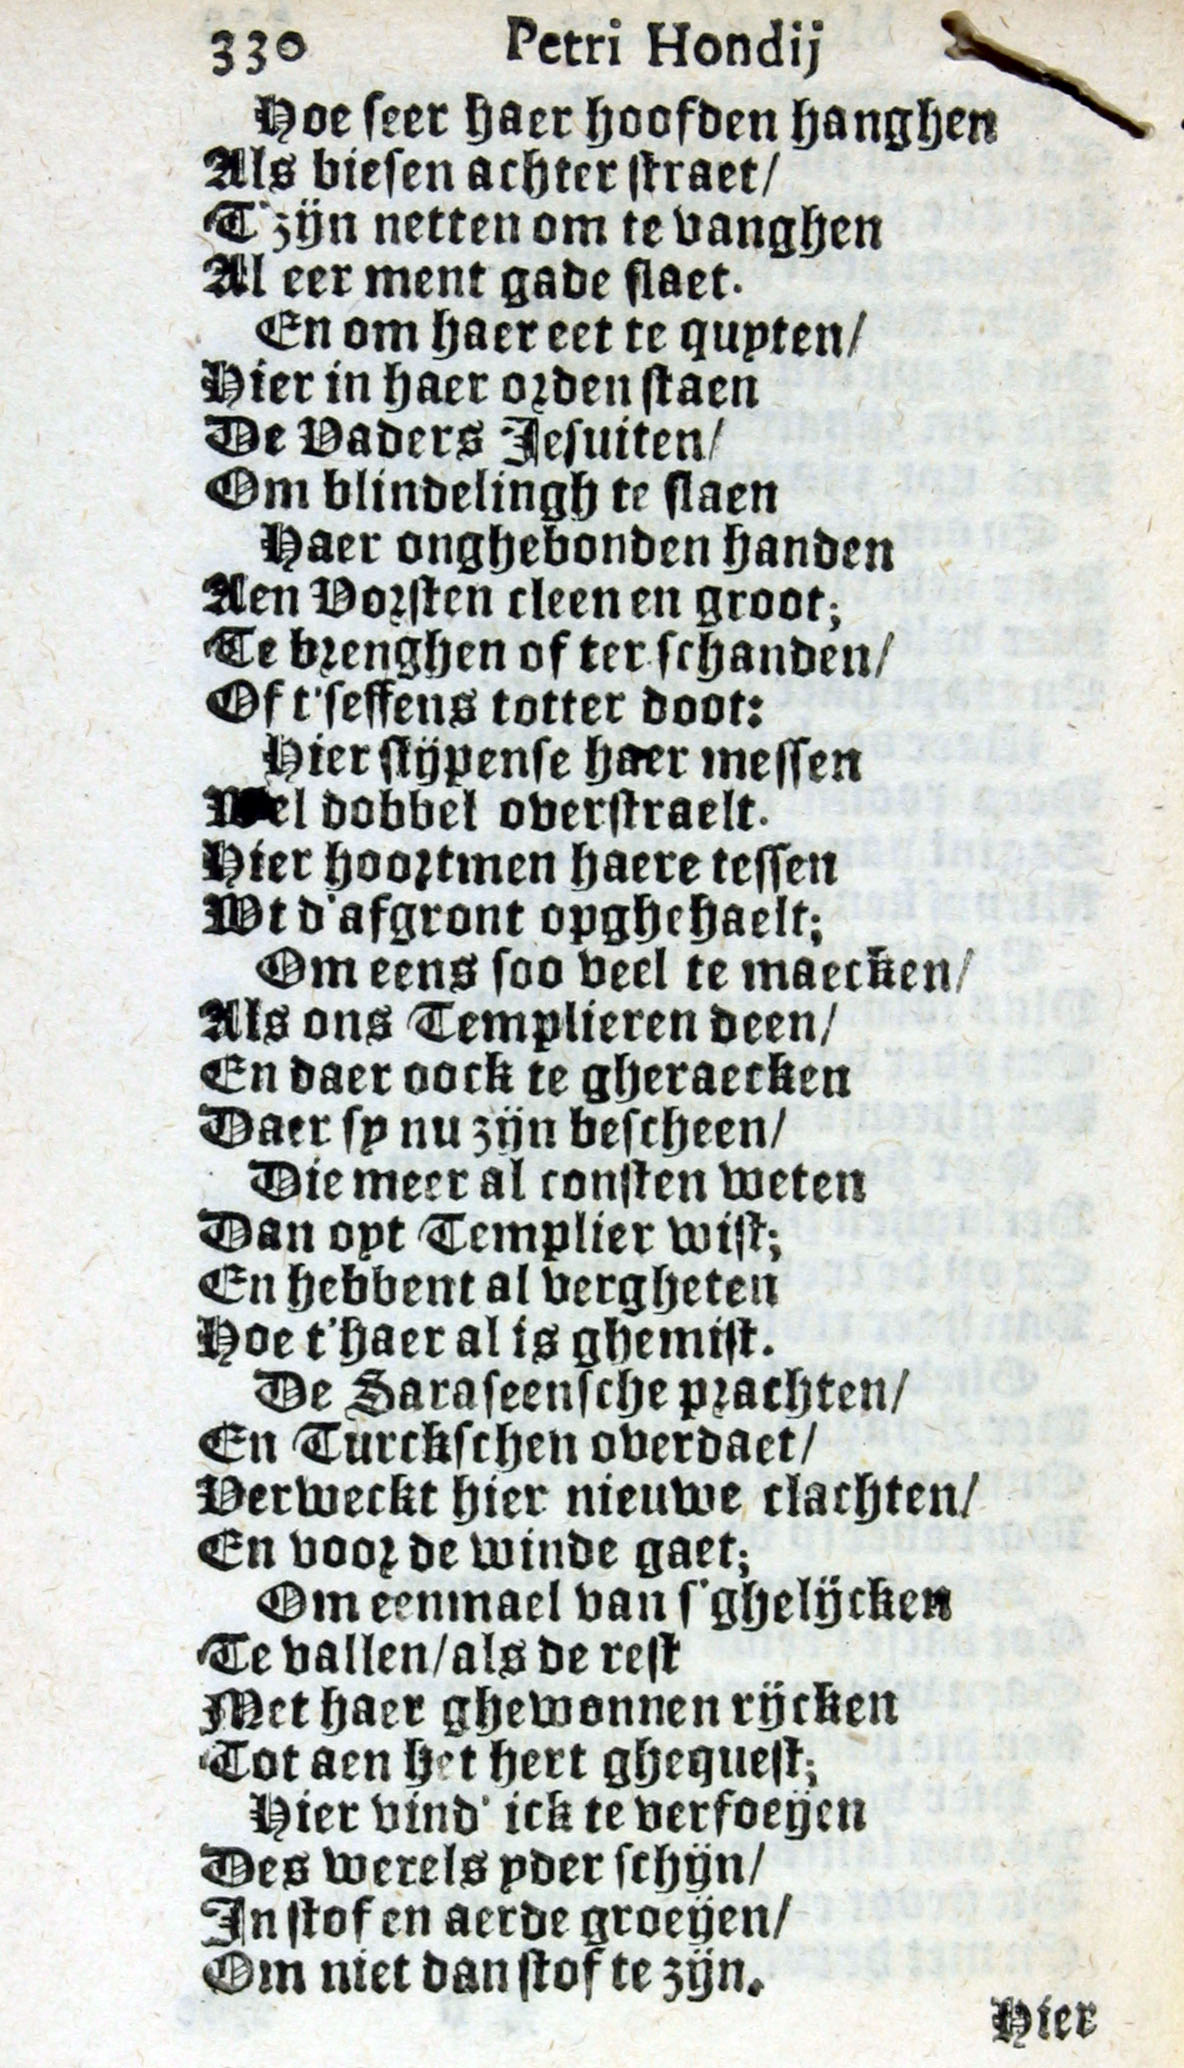 330 Petri Hondij
Hoe seer haer hoofden hanghen
Als biesen achter straet/
T'zijn netten om te vanghen
Al eer ment gade slaet.
En om haer eet te quyten/
Hier in haer orden staen
De Vaders Jesuiten/
Om blindelingh te slaen
Haer onghebonden handen
Aen Vorsten cleen en groot;
Te brenghen of ter schanden/
Of t'seffens totter doot:
Hier slijpense haer messen
Wel dobbel overstraelt.
Hier hoortmen haere tessen
Wt d'afgront opghehaelt;
Om eens soo veel te maecken/
Als ons Templieren deen/
En daer oock te gheraecken
Daer sy nu zijn bescheen/
Die meer al consten weten
Dan oyt Templier wist;
En hebbent al vergheten
Hoe t'haer al is ghemist.
De Saraseensche prachten/
En Turckschen overdaet/
Verweckt hier nieuwe clachten/
En voor de winde gaet;
Om eenmael van s'ghelijcken
Te vallen/als de rest
Met haer ghewonnen rijcken
Tot aen het hert ghequest;
Hier vind' ick te verfoeyen
Des werels yder schijn/
In stof en aerde groeyen/
Om niet dan stof te zijn.
Hier